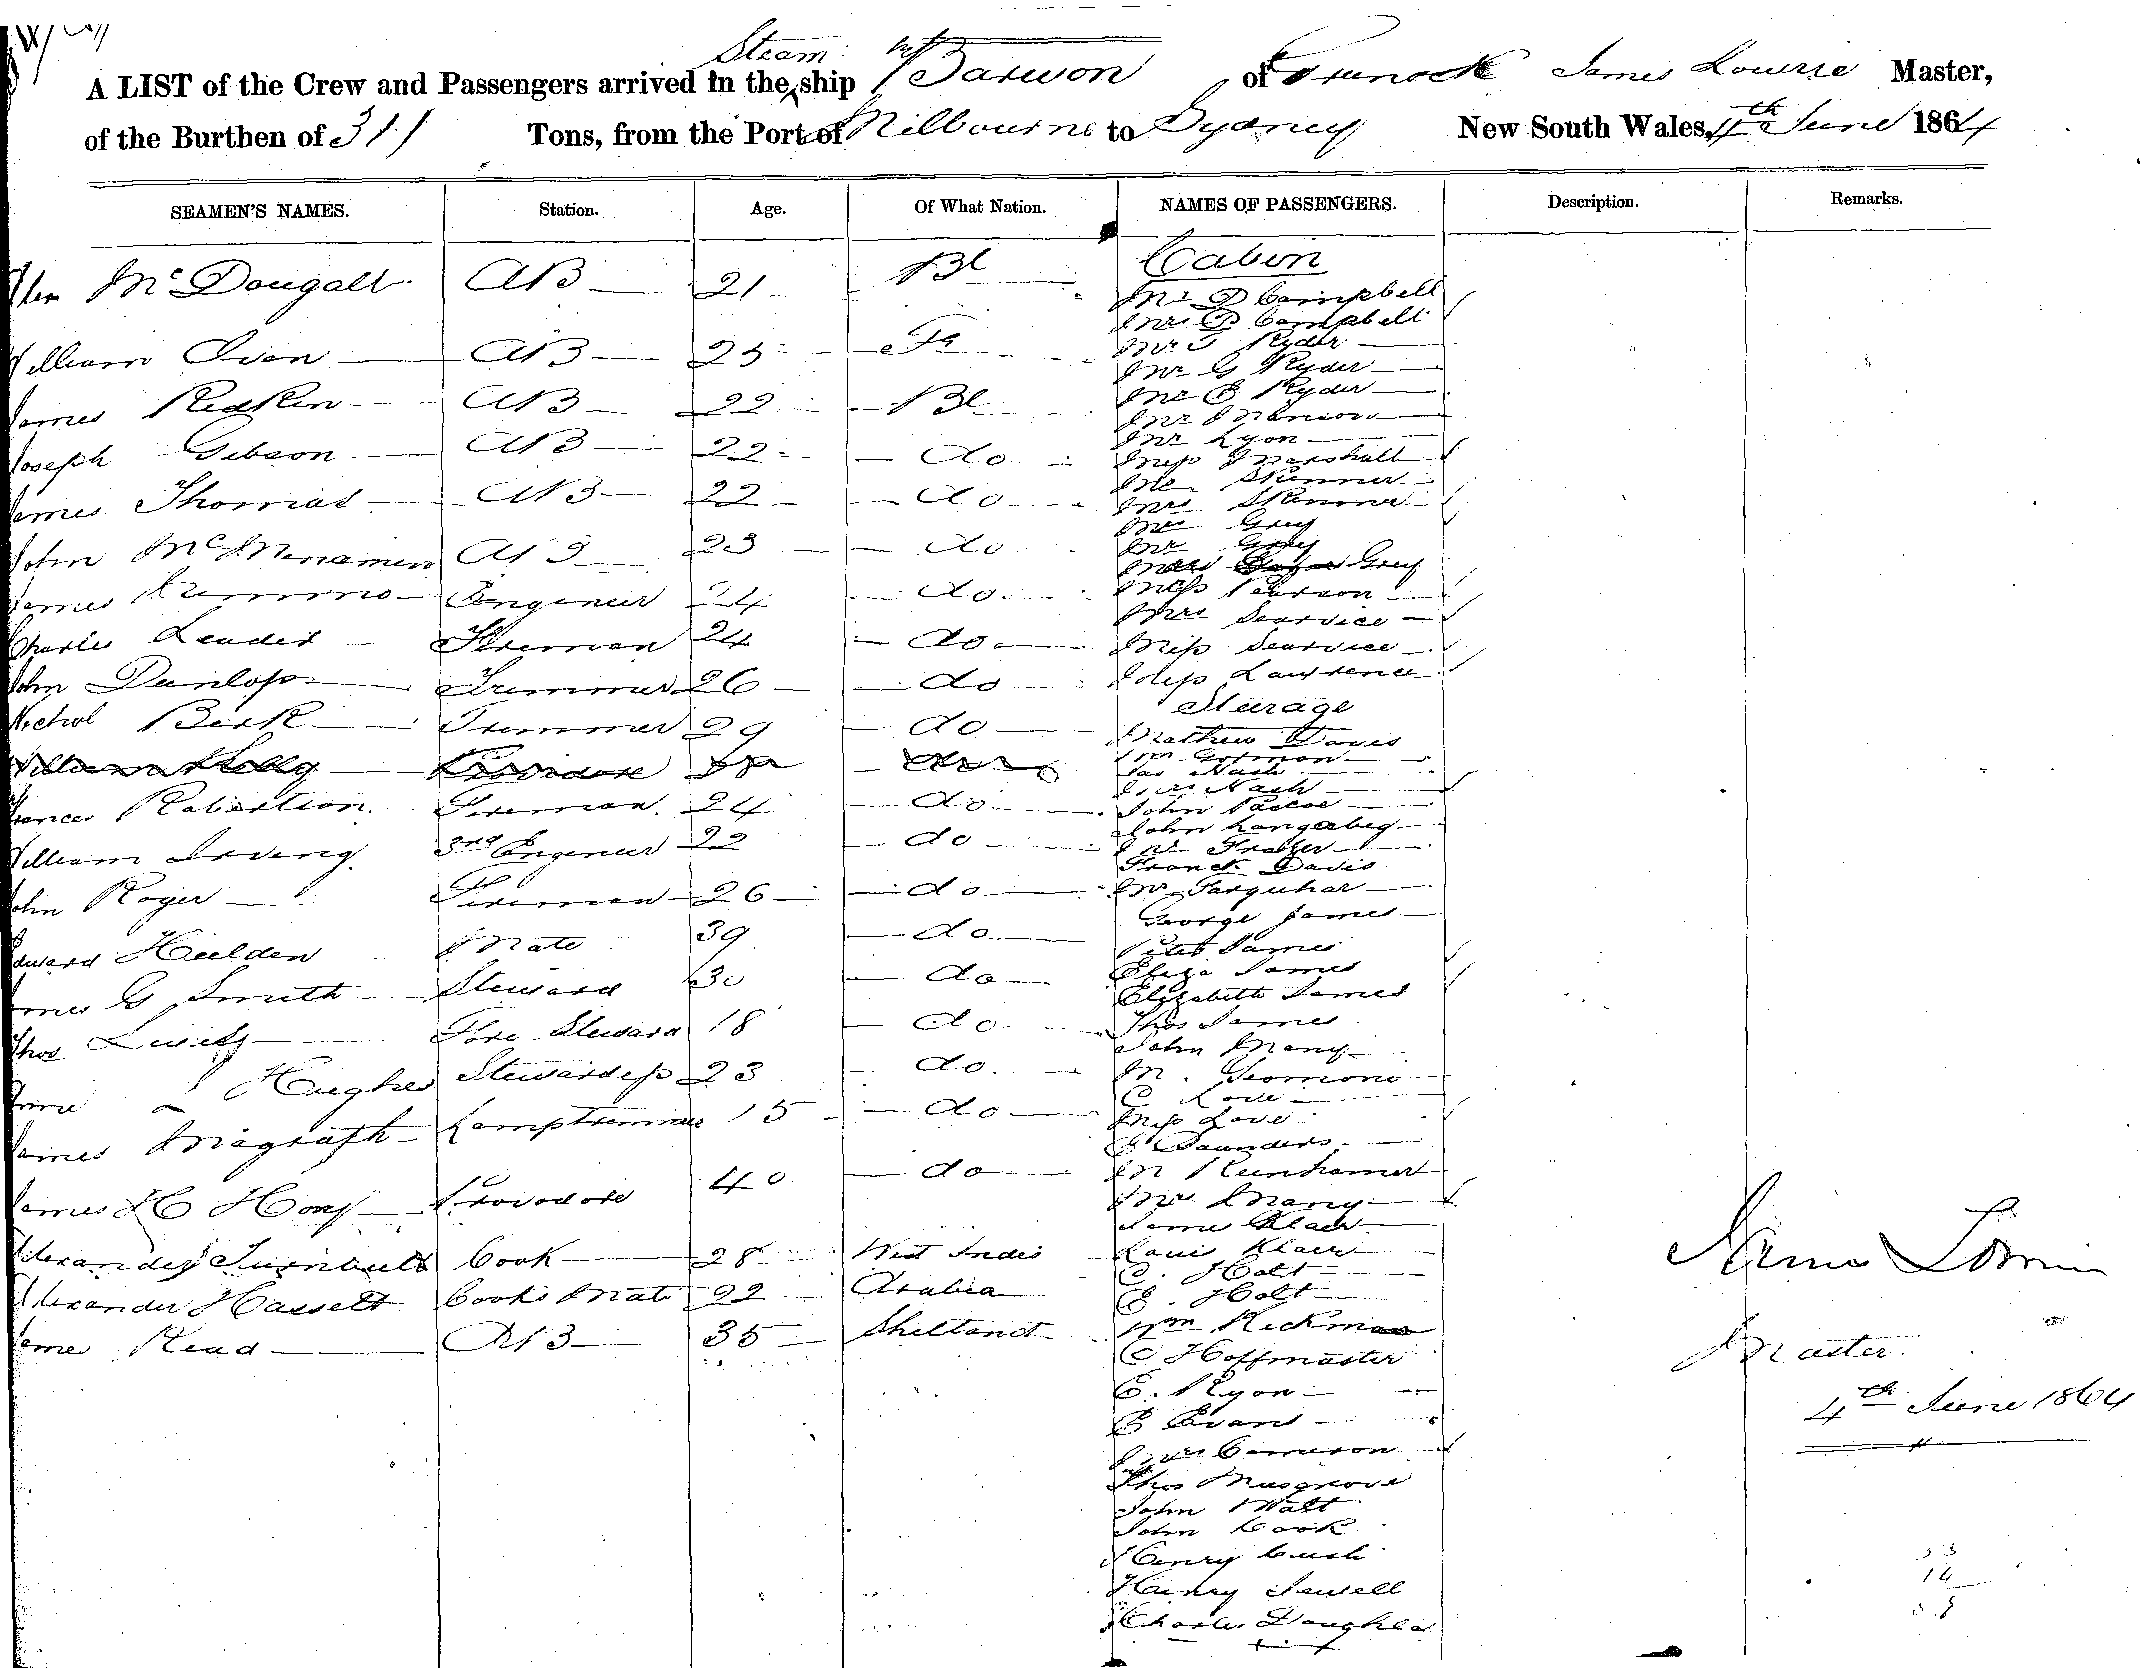 Steam
A LIST of the Crew and Passengers arrived in the ship Barwon of Grenock James Lowrie Master,
of the Burthen of 311 Tons, from the Port of Milbourne to Sydney New South Wales, 4th June 1864
SEAMEN'S NAMES. Station. Age. Of What Nation. NAMES OF PASSENGERS. Description. Remarks.
Mc Dougall AB 21 Bl
William AB 25
James Redkin AB 22 Bl
Joseph Gibson AB 22 do
James Thomas AB 22 do
John McMenamen AB 23 do
James Engineer 24 do
Charles Leader Fireman 24 do
John Dunlop Trimmer 26 do
Nichol Beck Trimmer 29 do
William
Frances Robertson Fireman 24 do
William Irving 3rd Engineer 22 do
John Roger Fireman 26 do
Edward Hulden Mate 39 do
James G Smith Steward 30 do
Thos Fore Steward 18 do
Hughes Stewardess 23 do
James Magrath Lamptrimmer 15 do
James H Hony Provodore 40 do
Alexander Turnbull Cook 28 West Indis
Alexander Hasselt Cooks Mate 22 Arabia
Jame Read AB 35 Sheltand
Cabin
Mr D Campbell
Mrs D Campbell
Mr Ryder
Mr G Ryder
Mr B Ryder
Mr
Mr Lyon
Miss Marshall
Mr Skinner
Mrs Skinner
Mrs Grey
Mr Grey
Grey
Miss Pearson
Mrs Searvice
Miss Searvice
Miss Lawrence
Sturage
Mathew Davis
Wm Gorman
Jas Nash
Nash
John Pascoe
John Langerbeg
Frazer
Franck Davis
Mr Farquhar
George James
Peter James
Eliza James
Elizabeth James
Thos James
John Many
M.
C Love
Miss Love
Saunders
M
Mrs Many
Klaer
Louis Klaer
C. Holt
E. Holt
Wm Rickman
C Hoffmaster
C. Ryon
B Evans
Mrs Cameron
Thos Musgrove
John Watt
John Cook
Henry Cush
Henry Sewell
Charles Daughles
James Lowrie
Master
4th June 1864
14